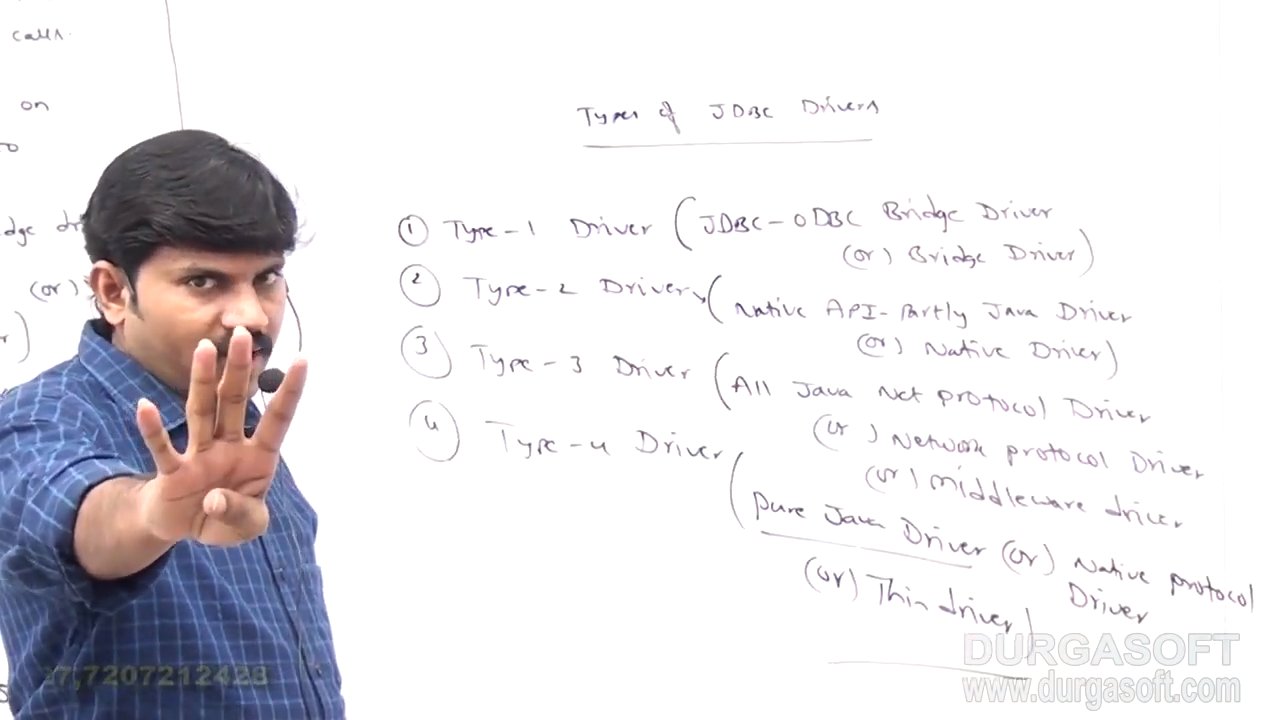 calls.
on
(or)
Types of JDBC Drivers
① Type-1 Driver (JDBC-ODBC Bridge Driver
(or) Bridge Driver)
② Type-2 Driver (Native API-Partly Java Driver
(or) Native Driver)
③ Type-3 Driver (All Java Net protocol Driver
(or) Network protocol Driver
(or) middleware driver
④ Type-4 Driver
(pure Java Driver (or) Native protocol
Driver
(or) Thin driver)
DURGASOFT
www.durgasoft.com
7,7207212428